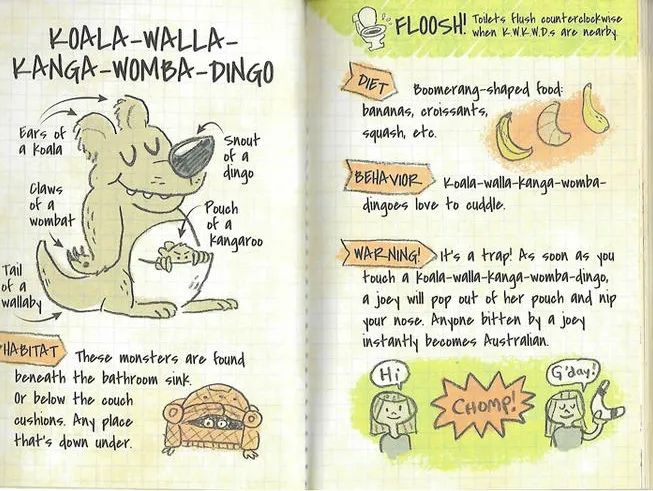 KOALA-WALLA-
KANGA-WOMBA-DINGO
Ears of
a koala
Snout
of a
dingo
Claws
of a
wombat
Pouch
of a
kangaroo
Tail
of a
wallaby
HABITAT These monsters are found
beneath the bathroom sink.
Or below the couch
cushions. Any place
that's down under.
FLOOSH! Toilets flush counterclockwise
when K.W.K.W.D.s are nearby.
DIET Boomerang-shaped food:
bananas, croissants,
squash, etc.
BEHAVIOR Koala-walla-kanga-womba-
dingoes love to cuddle.
WARNING! It's a trap! As soon as you
touch a koala-walla-kanga-womba-dingo,
a joey will pop out of her pouch and nip
your nose. Anyone bitten by a joey
instantly becomes Australian.
Hi
CHOMP!
G'day!